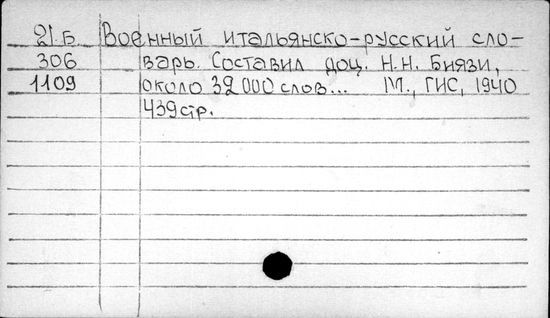 21.Б Военный итальянско-русский сло-
306 варь. Составил доц. Н.Н. Биязи,
1109 около 32 000 слов... М., ГИС, 1940
439 стр.